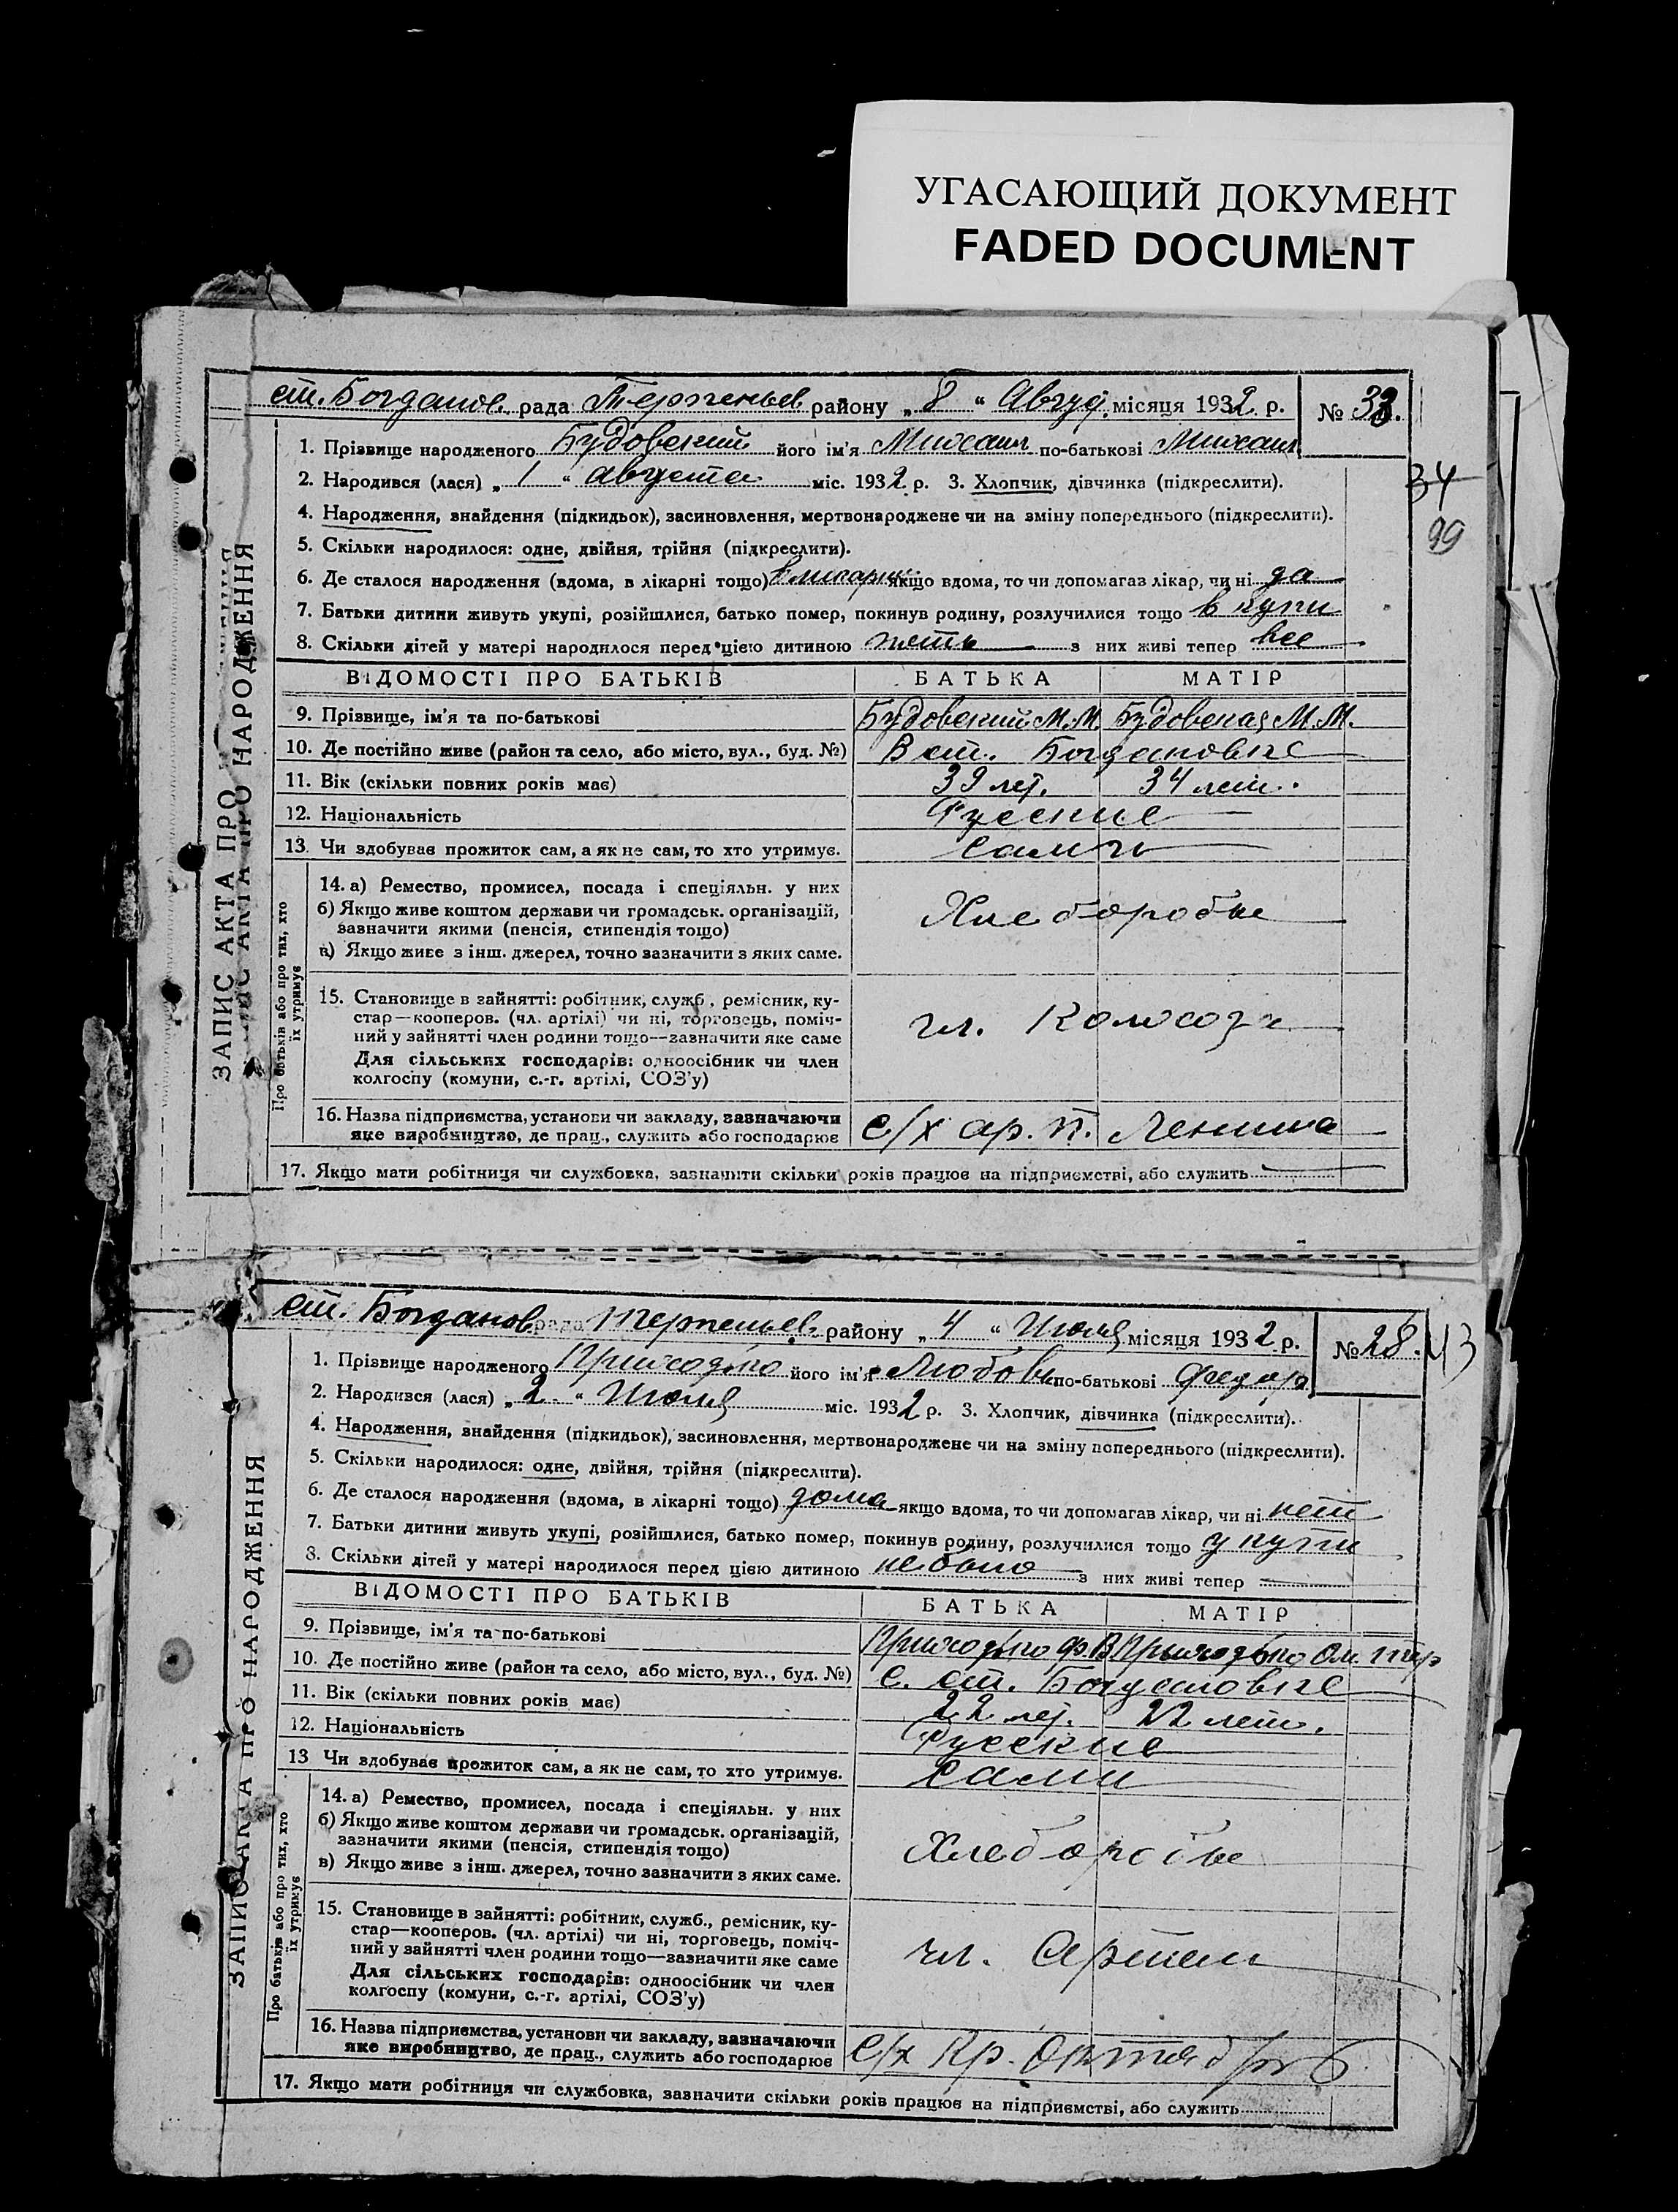 УГАСАЮЩИЙ ДОКУМЕНТ
FADED DOCUMENT
ст. Богданов. рада Терпеньев району „ 8 “ Авгус. місяця 1932 р. № 33.
1. Прізвище народженого Будовский його ім'я Михаил по-батькові Михаил
2. Народився (лася) „ 1 “ августа міс. 1932 р. 3. Хлопчик, дівчинка (підкреслити).
34
4. Народження, знайдення (підкидьок), засиновлення, мертвонароджене чи на зміну попереднього (підкреслити).
99
5. Скільки народилося: одне, двійня, трійня (підкреслити).
6. Де сталося народження (вдома, в лікарні тощо) якщо вдома, то чи допомагав лікар, чи ні да
7. Батьки дитини живуть укупі, розійшлися, батько помер, покинув родину, розлучилися тощо в купи
8. Скільки дітей у матері народилося перед цією дитиною пять з них живі тепер все
ВІДОМОСТІ ПРО БАТЬКІВ БАТЬКА МАТІР
9. Прізвище, ім'я та по-батькові Будовский М.М. Будовская М.М.
10. Де постійно живе (район та село, або місто, вул., буд. №) В ст. Богдановке
11. Вік (скільки повних років має) 39 лет. 34 лет.
12. Національність Русские
13. Чи здобував прожиток сам, а як не сам, то хто утримує. сами
14. а) Ремество, промисел, посада і спеціяльн. у них
б) Якщо живе коштом держави чи громадськ. організацій,
зазначити якими (пенсія, стипендія тощо) Хлеборобы
в) Якщо живе з інш. джерел, точно зазначити з яких саме.
15. Становище в зайнятті: робітник, служб., ремісник, ку-
стар—кооперов. (чл. артілі) чи ні, торговець, поміч- чл. Колхоза
ний у зайнятті член родини тощо—зазначити яке саме
Для сільських господарів: одноосібник чи член
колгоспу (комуни, с.-г. артілі, СОЗ'у)
16. Назва підприємства, установи чи закладу, зазначаючи
яке виробництво, де прац., служить або господарює с/х ар. п. Ленина
17. Якщо мати робітниця чи службовка, зазначити скільки років працює на підприємстві, або служить
ЗАПИС АКТА ПРО НАРОДЖЕННЯ
Про батьків або про тих, хто
їх утримує
ст. Богданов рада Терпеньев. району „ 4 “ Июля місяця 1932 р. № 28. 43
1. Прізвище народженого Приходько його ім'я Любовь по-батькові Федор
2. Народився (лася) „ 2 “ Июля міс. 1932 р. 3. Хлопчик, дівчинка (підкреслити).
4. Народження, знайдення (підкидьок), засиновлення, мертвонароджене чи на зміну попереднього (підкреслити).
5. Скільки народилося: одне, двійня, трійня (підкреслити).
6. Де сталося народження (вдома, в лікарні тощо) дома якщо вдома, то чи допомагав лікар, чи ні нет
7. Батьки дитини живуть укупі, розійшлися, батько помер, покинув родину, розлучилися тощо у купи
8. Скільки дітей у матері народилося перед цією дитиною не было з них живі тепер
ВІДОМОСТІ ПРО БАТЬКІВ БАТЬКА МАТІР
9. Прізвище, ім'я та по-батькові Приходько Ф.В Приходько
10. Де постійно живе (район та село, або місто, вул., буд. №) с. ст. Богдановке
11. Вік (скільки повних років має) 22 лет. 22 лет.
12. Національність Русские
13 Чи здобував прожиток сам, а як не сам, то хто утримує. сами
14. а) Ремество, промисел, посада і спеціяльн. у них
б) Якщо живе коштом держави чи громадськ. організацій,
зазначити якими (пенсія, стипендія тощо) Хлеборобы
в) Якщо живе з інш. джерел, точно зазначити з яких саме.
15. Становище в зайнятті: робітник, служб., ремісник, ку-
стар—кооперов. (чл. артілі) чи ні, торговець, поміч-
ний у зайнятті член родини тощо—зазначити яке саме чл. Артели
Для сільських господарів: одноосібник чи член
колгоспу (комуни, с.-г. артілі, СОЗ'у)
16. Назва підприємства, установи чи закладу, зазначаючи
яке виробництво, де прац., служить або господарює с/х Кр.
17. Якщо мати робітниця чи службовка, зазначити скільки років працює на підприємстві, або служить
ЗАПИС АКТА ПРО НАРОДЖЕННЯ
Про батьків або про тих, хто
їх утримує